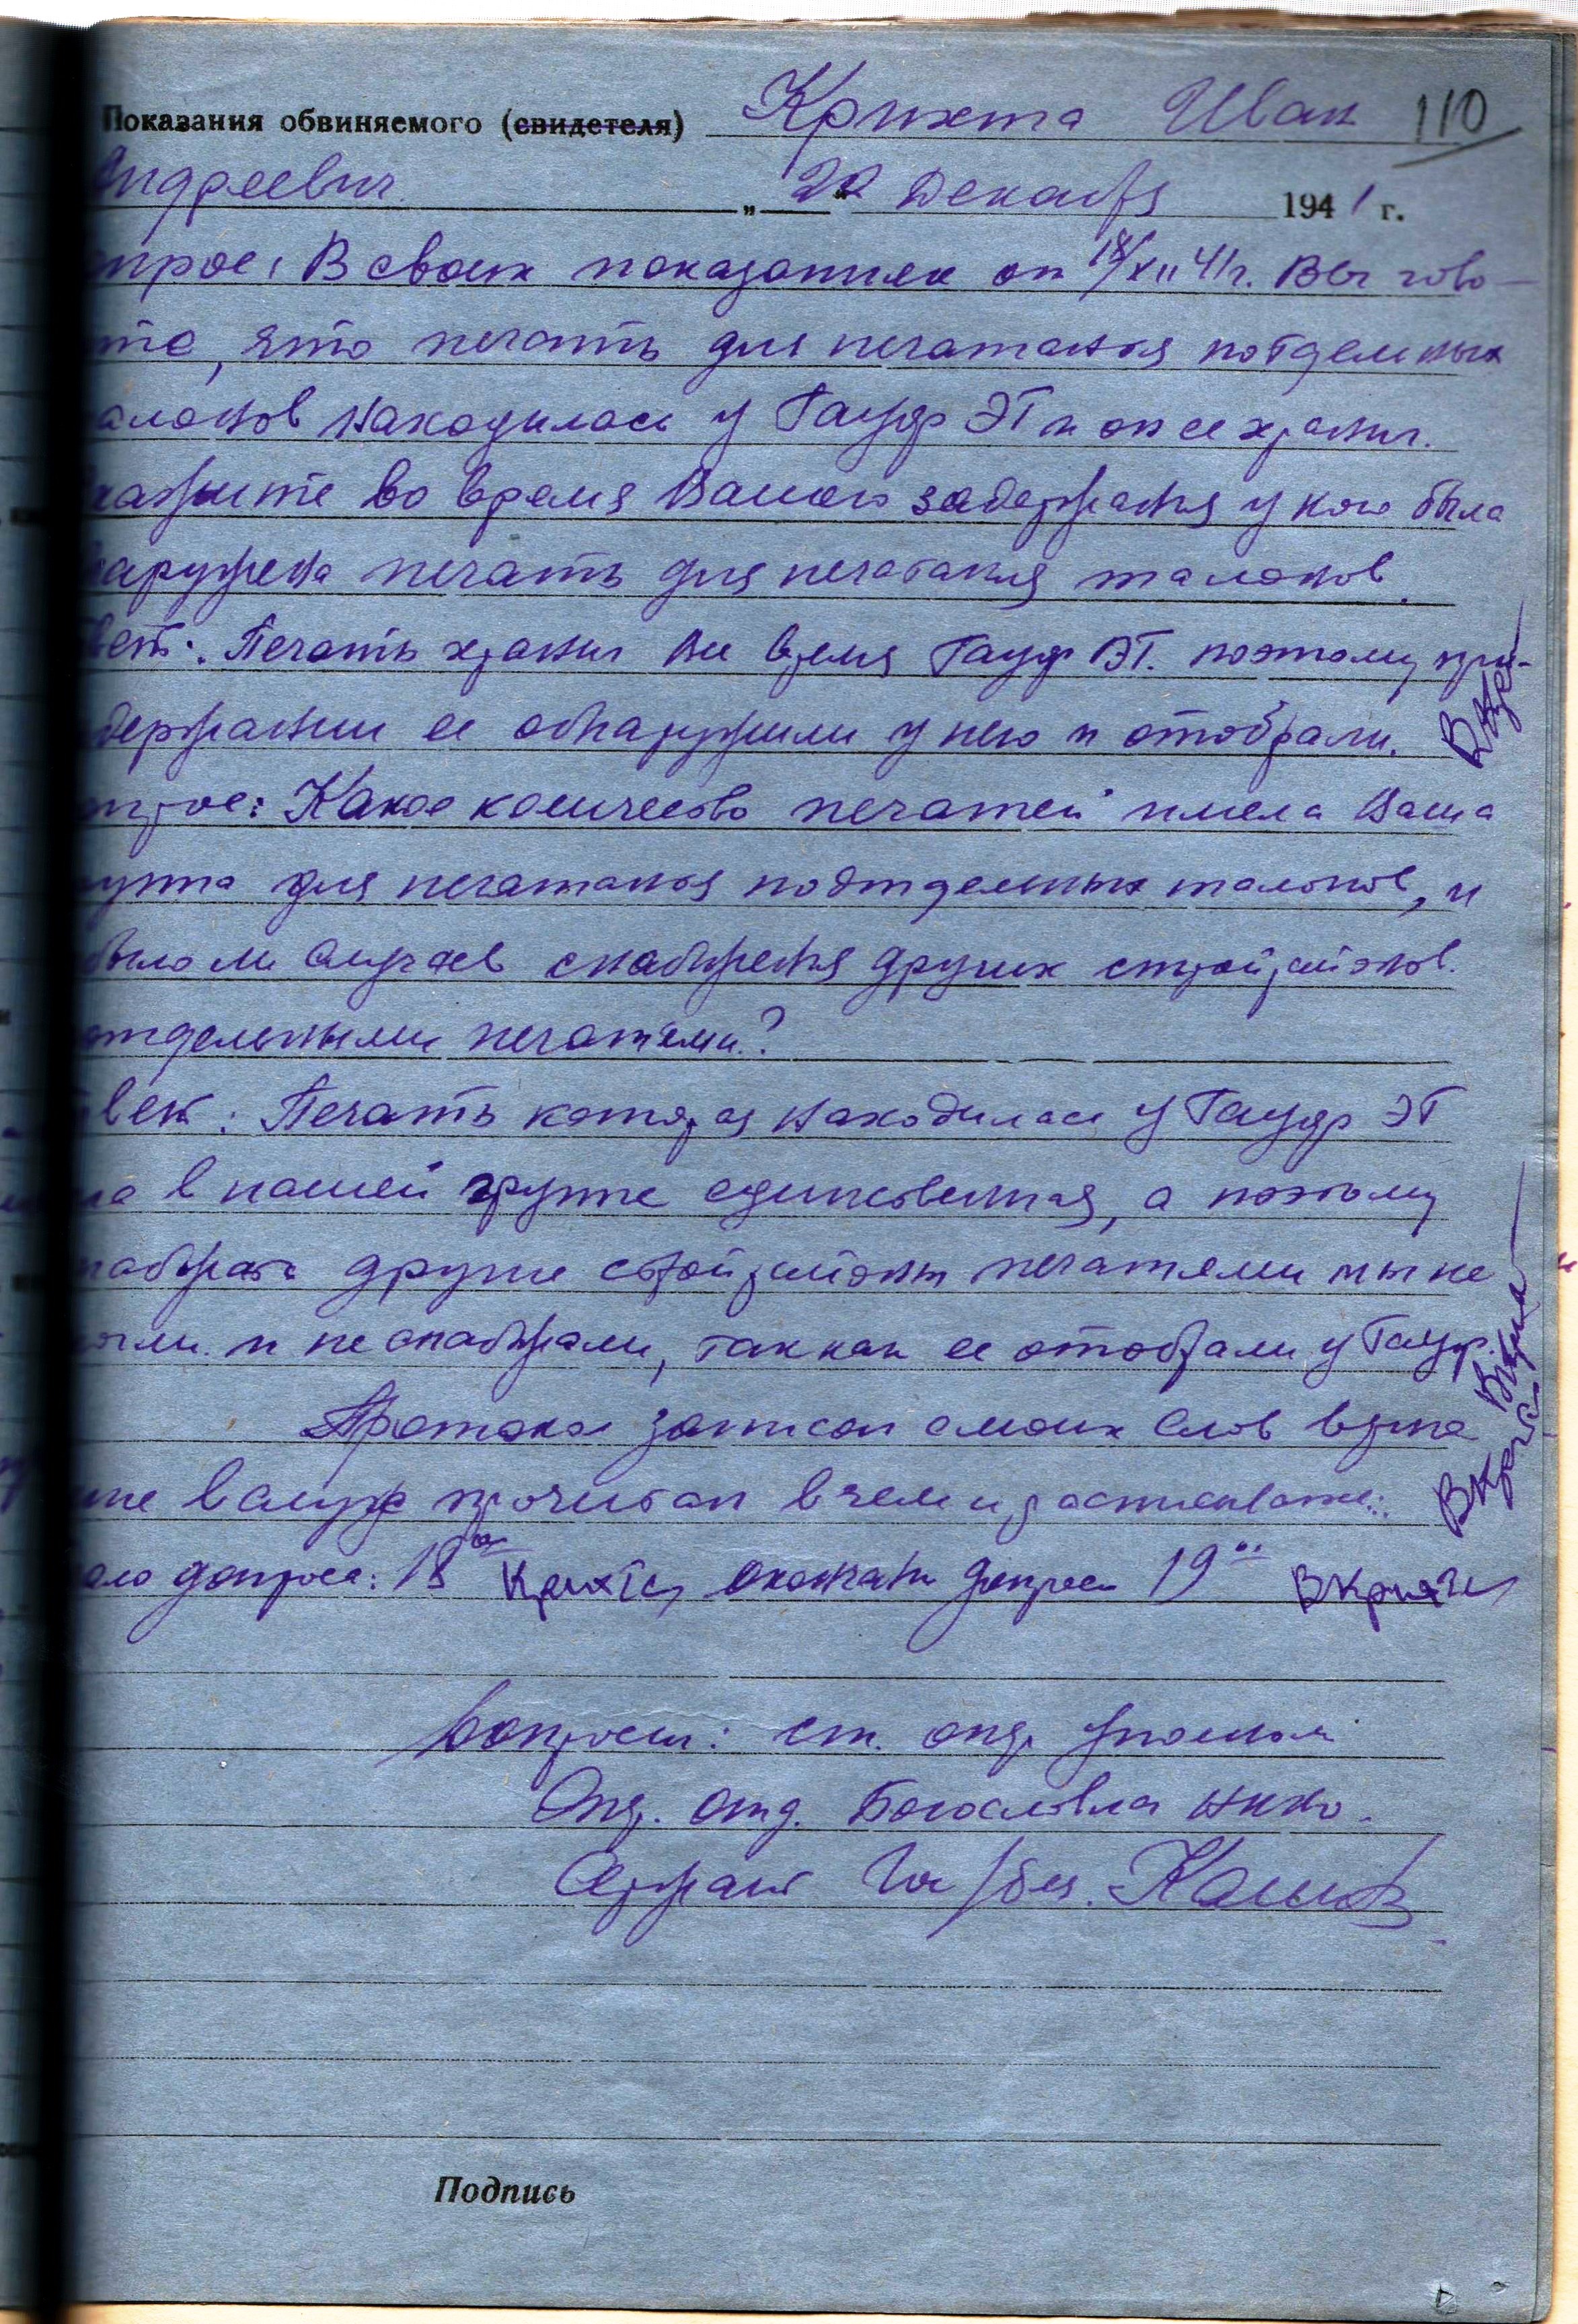 Показания обвиняемого (свидетеля) Крихта Иван 110
Андреевич „20“ Декабря 1941 г.
прос: В своих показаниях от 18/XII 41 г. Вы гово-
те, что печать для печатания подделных
алонов находилась у Гауф ЭГ и он ее хранил.
кажите во время Вашего задержания у кого была
аружена печать для печатания талонов.
вет: Печать хранил все время Гауф ЭГ. поэтому при-
держании ее обнаружили у него и отобрали.
прос: Какое количество печатей имела Ваша
уппа для печатания поддельных талонов, и
было ли случаев снабжения других стройрайонов
дельными печатями?
вет: Печать которая находилась у Гауф ЭГ
ла в нашей группе единственная, а поэтому
набжать другие стройрайоны печатями мы не
огли и не снабжали, так как ее отобрали у Гауф.
Протокол записан с моих слов верно
мне вслух прочитан в чем и расписываюсь:
ало допроса: 18 Крихта окончание допроса 19 Крихта
Допросил: ст. опер уполном
Опер. отд. Богословлаг НКВД
Сержант Гос/без.
Подпись